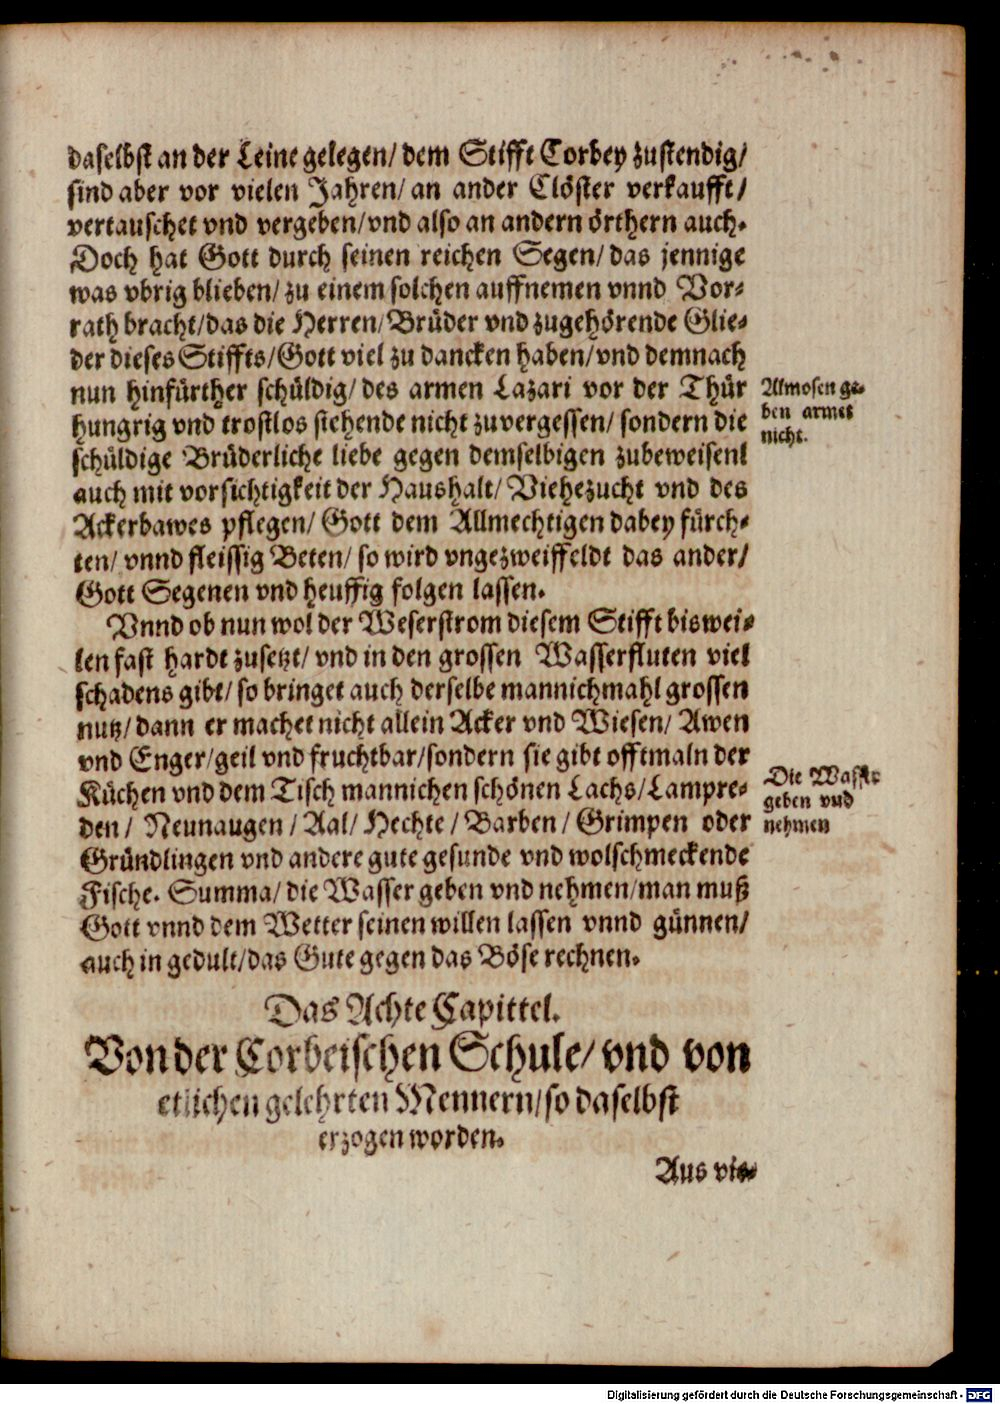 daselbst an der Leine gelegen/ dem Stifft Corbey zustendig/
sind aber vor vielen Jahren/ an ander Clöster verkaufft/
vertauschet vnd vergeben/ vnd also an andern örthern auch.
Doch hat Gott durch seinen reichen Segen/ das jennige
was vbrig blieben/ zu einem solchen auffnemen vnnd Vor-
rath bracht/ das die Herren/ Brüder vnd zugehörende Glie-
der dieses Stiffts/ Gott viel zu dancken haben/ vnd demnach
nun hinfürther schüldig/ des armen Lazari vor der Thür
hungrig vnd trostlos stehende nicht zuvergessen/ sondern die
schüldige Brüderliche liebe gegen demselbigen zubeweisenl
auch mit vorsichtigkeit der Haushalt/ Viehezucht vnd des
Ackerbawes pflegen/ Gott dem Allmechtigen dabey fürch-
ten/ vnnd fleissig Beten/ so wird vngezweiffeldt das ander/
Gott Segenen vnd heuffig folgen lassen.
Almosen ge-
ben armet
nicht.
Vnnd ob nun wol der Weserstrom diesem Stifft biswei-
len fast hardt zusetzt/ vnd in den grossen Wasserfluten viel
schadens gibt/ so bringet auch derselbe mannichmahl grossen
nutz/ dann er machet nicht allein Acker vnd Wiesen/ Awen
vnd Enger/ geil vnd fruchtbar/ sondern sie gibt offtmaln der
Küchen vnd dem Tisch mannichen schönen Lachs/ Lampre-
den/ Neunaugen/ Aal/ Hechte/ Barben/ Grimpen oder
Gründlingen vnd andere gute gesunde vnd wolschmeckende
Fische. Summa/ die Wasser geben vnd nehmen/ man muß
Gott vnnd dem Wetter seinen willen lassen vnnd günnen/
auch in gedult/ das Gute gegen das Böse rechnen.
Die Wasser
geben vnd
nehmen
Das Achte Capittel.
Von der Corbeischen Schule/ vnd von
etlichen gelehrten Mennern/ so daselbst
erzogen worden.
Aus vie-
Digitalisierung gefördert durch die Deutsche Forschungsgemeinschaft - DFG